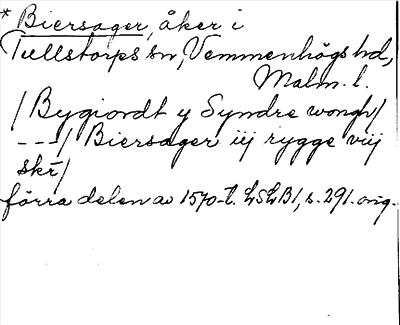 * Biersager, åker i
Tullstorps sn, Vemmenhögs hd,
Malm. l.
/Bygiordt y Syndre wongh/
---/ Biersager iij rygge viij
skr/
förra delen av 1570-t. LSLB1, s. 291. orig.